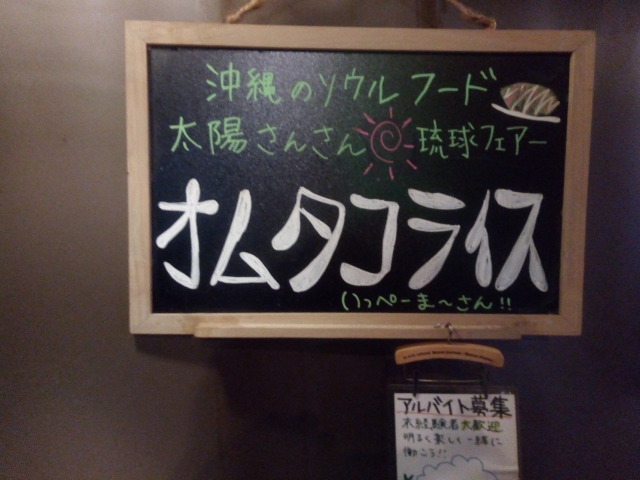 沖縄のソウルフード
太陽さんさん 琉球フェアー
オムタコライス
いっぺーま〜さん!!
アルバイト募集
未経験者大歓迎
明るく楽しく一緒に
働こう!!